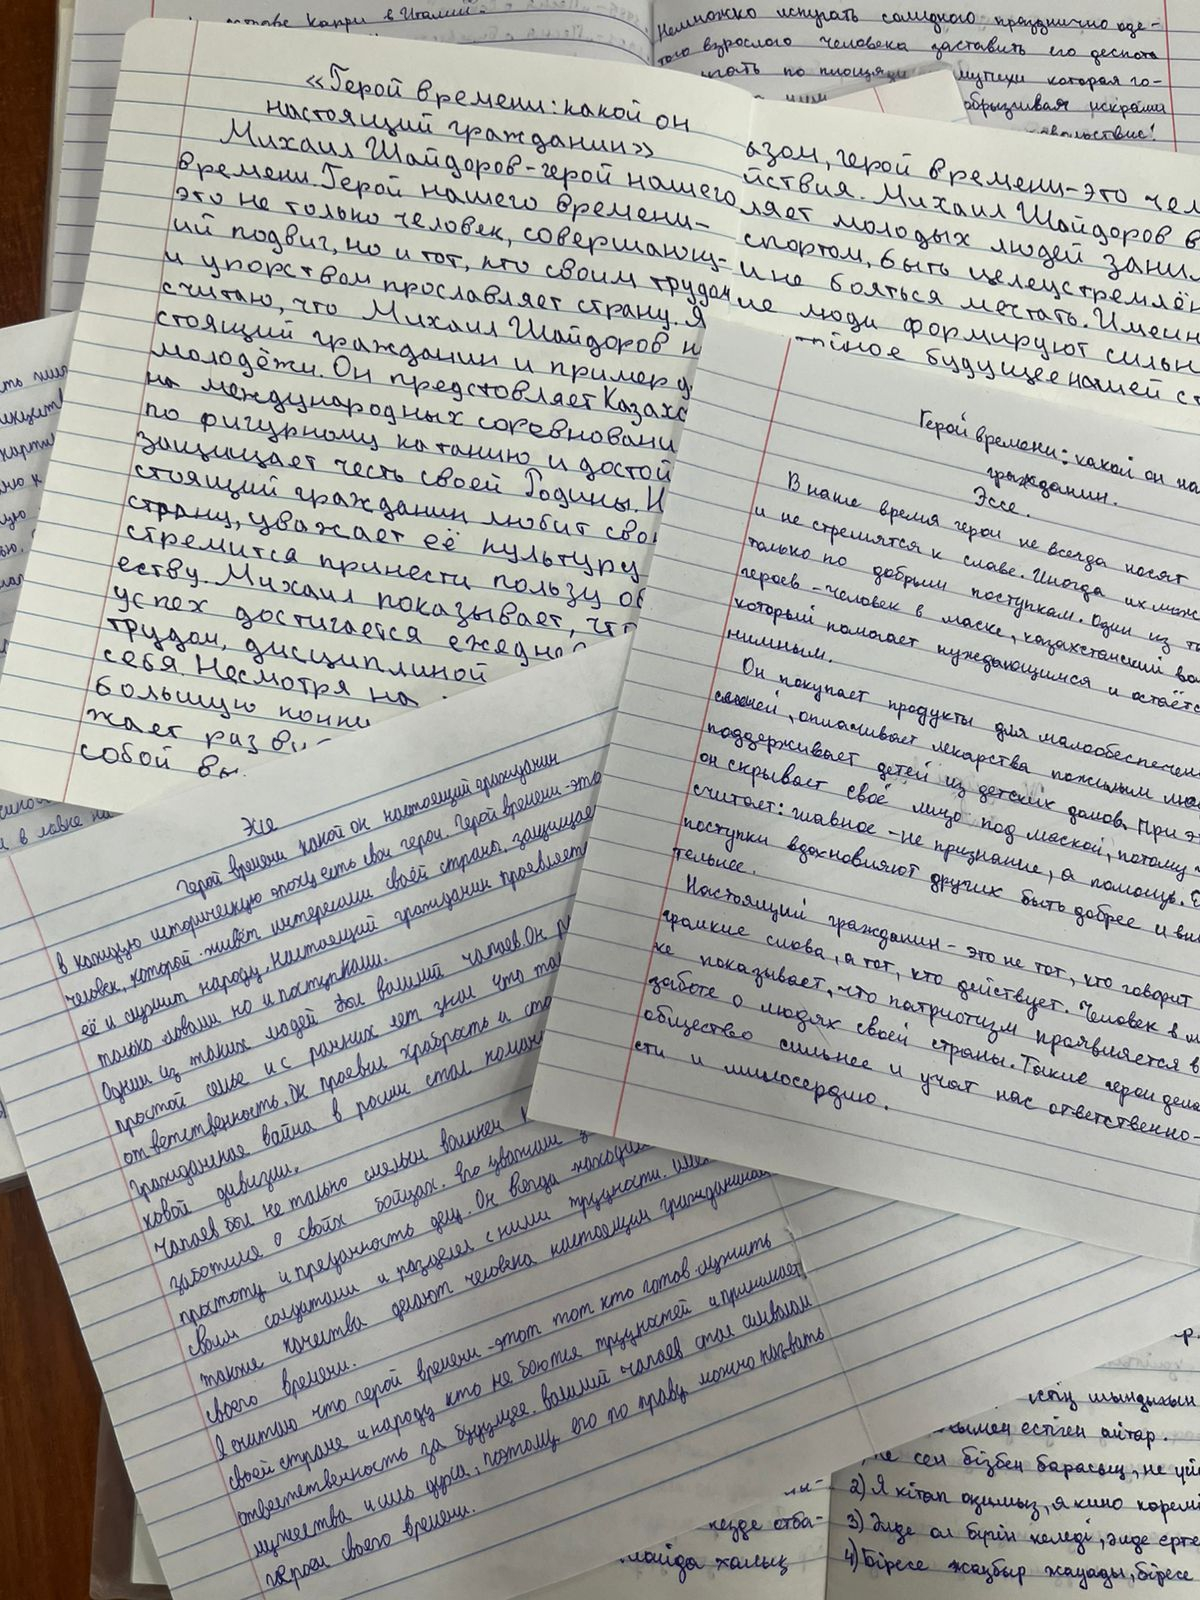 острове Капри в Италии.
Немножко испугать солидного празднично оде-
того взрослого человека заставить его
по площади которая го-
обрызгивая искрами
«Герой времени: какой он
настоящий гражданин»
Михаил Шайдоров - герой нашего
времени. Герой нашего времени -
это не только человек, совершающ-
ий подвиг, но и тот, кто своим трудом
и упорством прославляет страну. Я
считаю, что Михаил Шайдоров н
стоящий гражданин и пример д
молодёжи. Он предстовляет Казахс
на международных соревновани
по фигурному катанию и достой
защищает честь своей Родины. Н
стоящий гражданин любит сво
страну, уважает её культуру
стремится принести пользу об
еству. Михаил показывает, что
успех достигается ежедне
трудом, дисциплиной
себя. Несмотря на
большую конку
жает разви
собой вы
азом, герой времени - это чел
йствия. Михаил Шайдоров в
ляет молодых людей заним
спортом, быть целеустремлён
и не бояться мечтать. Именн
ие люди формируют сильн
йное будущее нашей ст
Герой времени: какой он на
гражданин.
Эссе.
В наше время герои не всегда носят
и не стремятся к славе. Иногда их мож
только по добрым поступкам. Один из т
героев - человек в маске, казахстанский вол
который помогает нуждающимся и остаётс
нимным.
Он покупает продукты для малообеспечен
семей, оплачивает лекарства пожилым лю
поддерживает детей из детских домов. При э
он скрывает своё лицо под маской, потому
считает: главное - не признание, а помощь.
поступки вдохновляют других быть добрее и вни
тельнее.
Настоящий гражданин - это не тот, кто говорит
громкие слова, а тот, кто действует. Человек в м
ке показывает, что патриотизм проявляется в
заботе о людях своей страны. Такие герои дела
общество сильнее и учат нас ответственно-
сти и милосердию.
Эссе
Герой времени какой он настоящий гражданин
В каждую историческую эпоху есть свои герои. Герой времени - это
человек, который живёт интересами своей страны, защищае
её и служит народу. Настоящий гражданин проявляет
только словами но и поступками.
Одним из таких людей был василий чапаев. Он р
простой семье и с ранних лет знал что так
ответственность. Он проявил храбрость и ста
Гражданская война в росии стал коман
ковой дивизии.
Чапаев был не только смелым воином
заботился о своих бойцах. Его уважали з
простоту и преданность делу. Он всегда находил
своим солдатами и разделял с ними трудности.
такие качества делают человека настоящим гражданином
своего времени.
Я считаю что герой времени - этот тот кто готов служить
своей стране и народу кто не боится трудностей и принимает
ответственность за будущее. василий чапаев стал символом
мужества и силы духа, поэтому его по праву можно назвать
героем своего времени.
естіген айтар.
сен бізбен барасың, не үй
2) Я кітап оқимыз, я кино көремі
3) Әлде ол бүгін келеді, әлде ерте
4) Біресе жаңбыр жауады, біресе
кезде отба-
халық